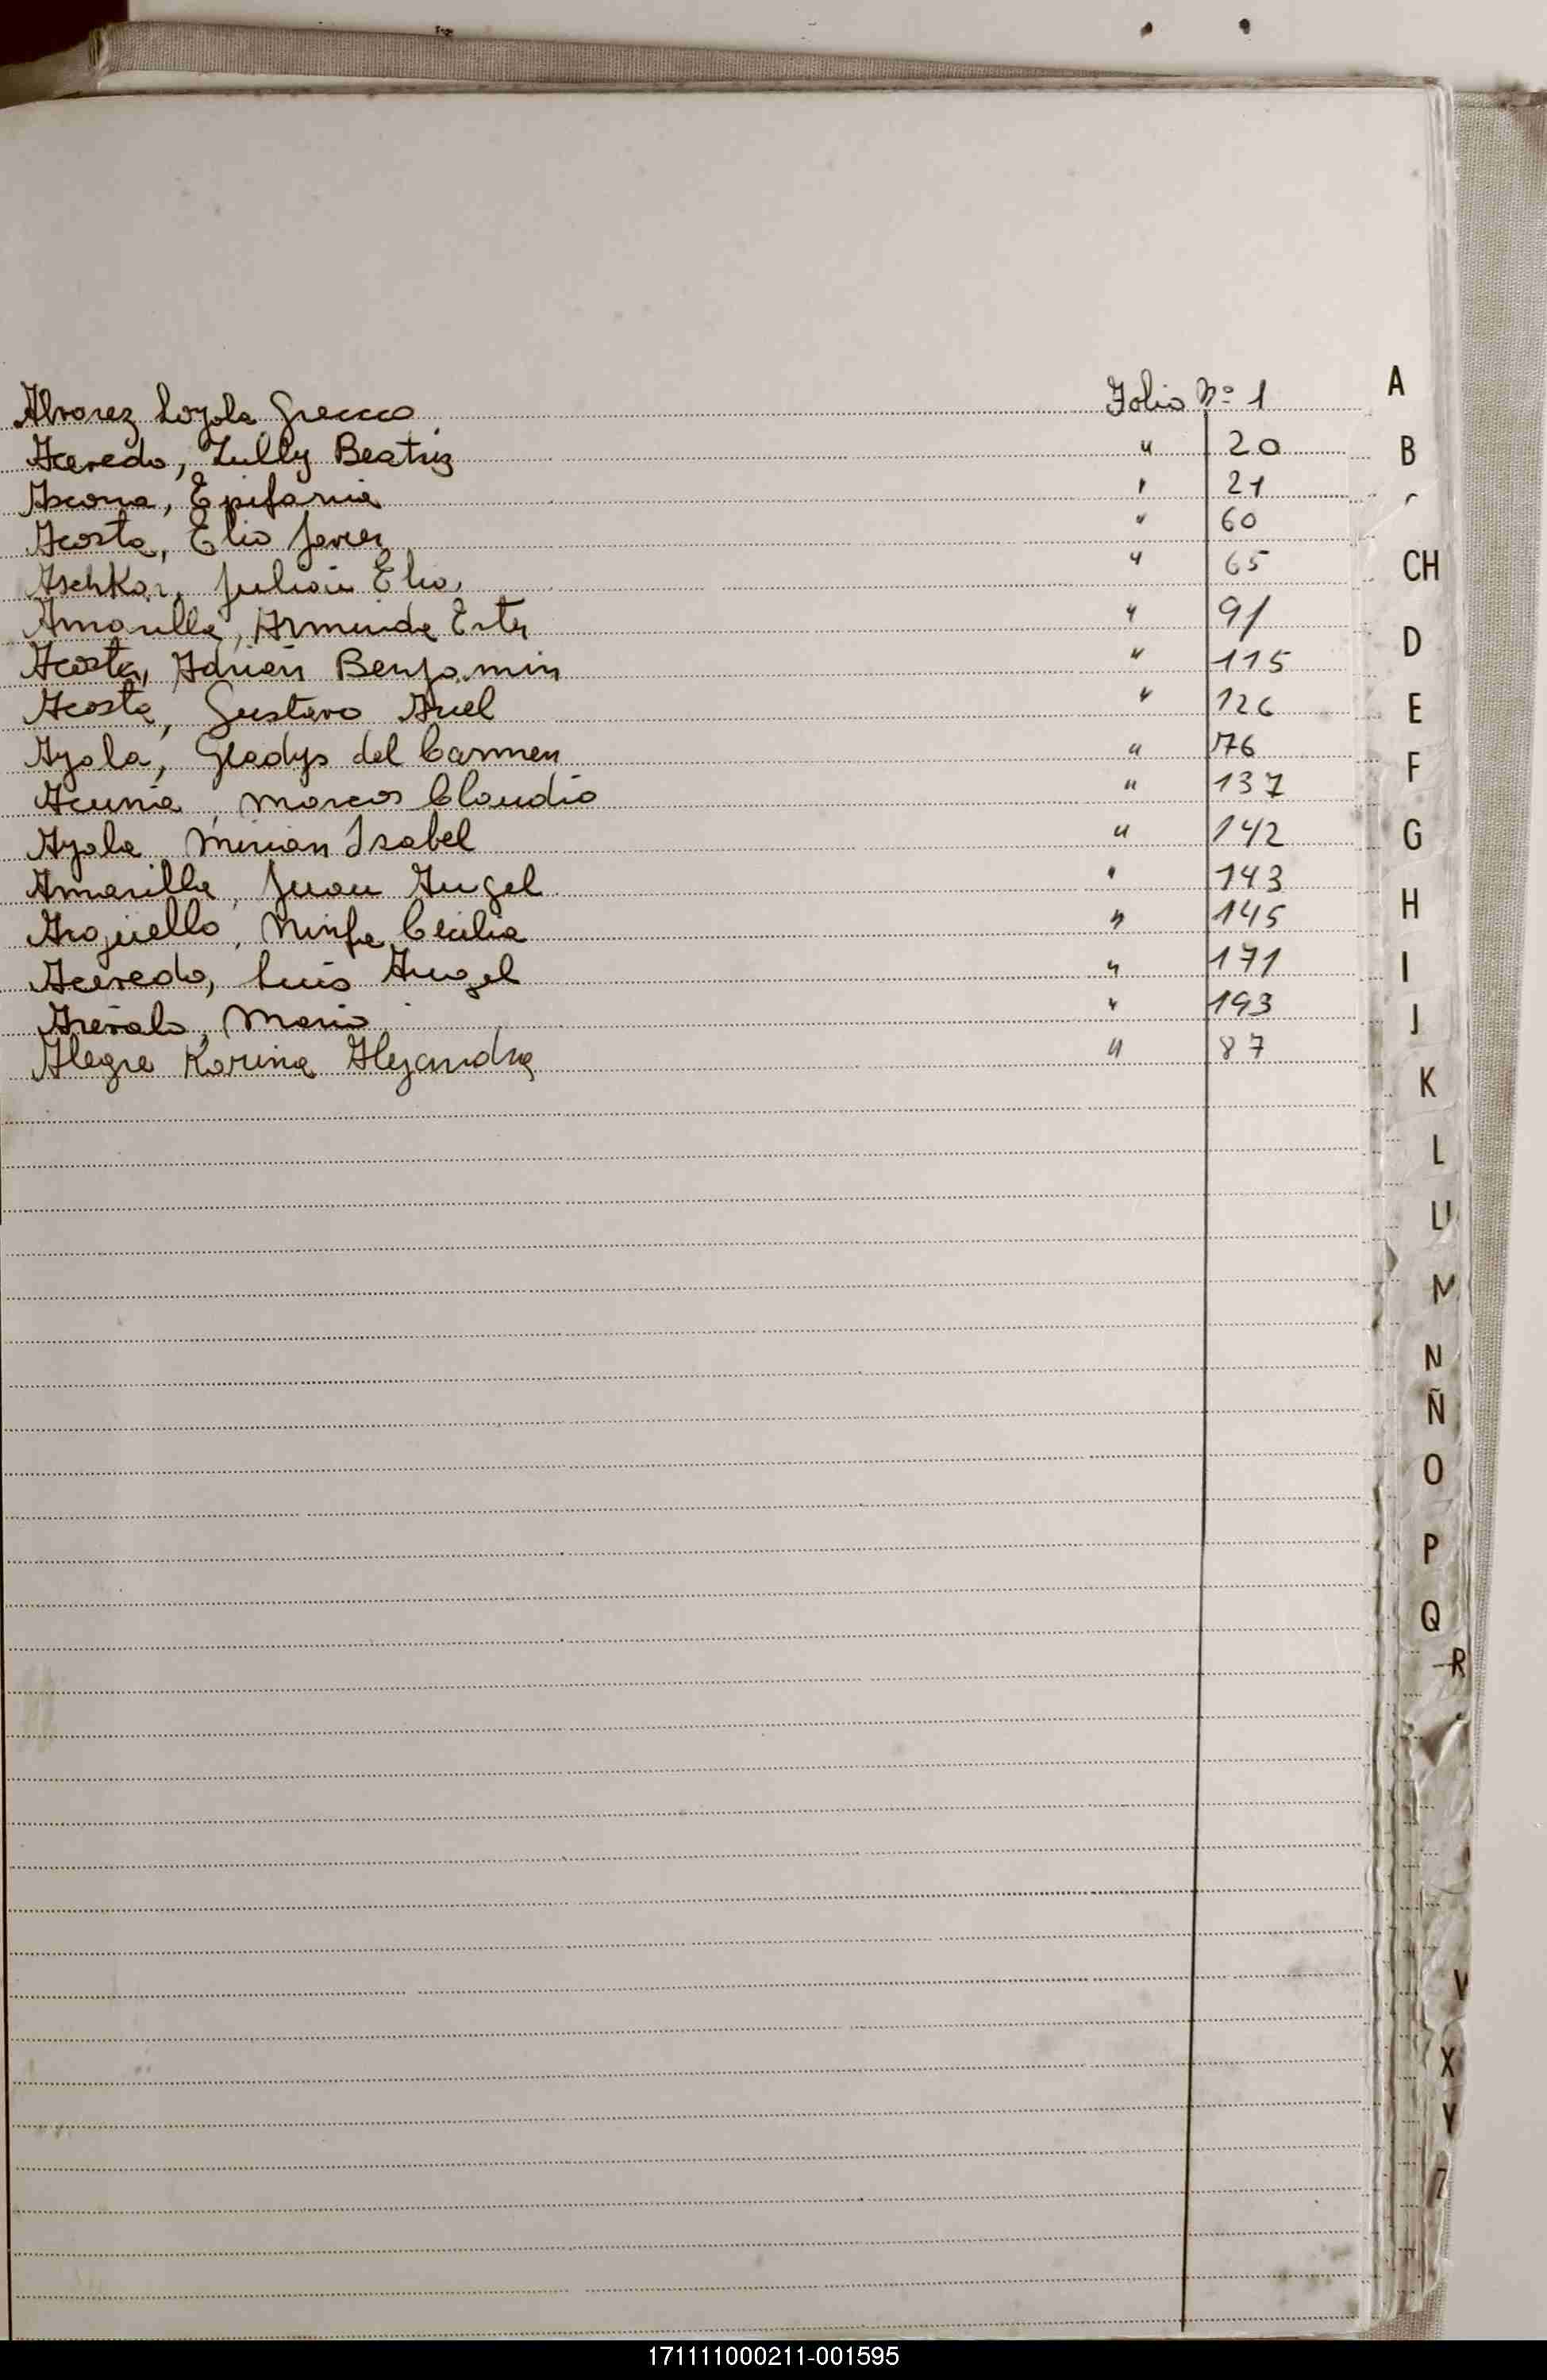 Alvarez Loyola Greccco Folio Nº 1
Acevedo, Zully Beatriz " 20
Ascona, Epifania " 21
Acosta, Elio Javier " 60
Aschkar, Julian Elia, " 65
Amarilla, Arminda Ester " 91
Acosta, Adrian Benjamin " 115
Acosta, Gustavo Ariel " 126
Ayala, Gladys del Carmen " 76
Acuña, Marcos Claudio " 137
Ayala Mirian Isabel " 142
Amarilla, Juan Angel " 143
Argüello, Ninfa Cecilia " 145
Acevedo, Luis Angel " 171
Arevalo, Mario " 193
Alegre Karina Alejandra " 87
A
B
CH
D
E
F
G
H
I
J
K
L
M
N
Ñ
O
P
Q
R
V
X
Y
171111000211-001595